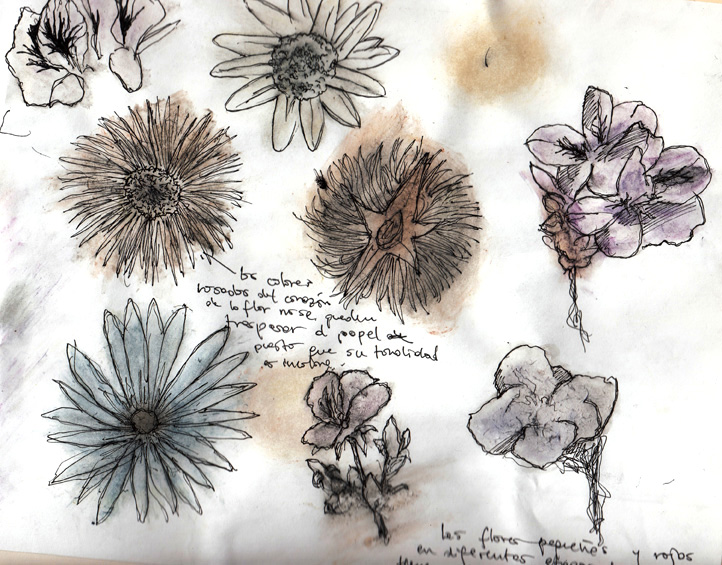 los colores
rosados del corazón
de la flor no se pueden
traspasar al papel
puesto que su tonalidad
es incolora.
Las flores pequeñas y rojas
en diferentes